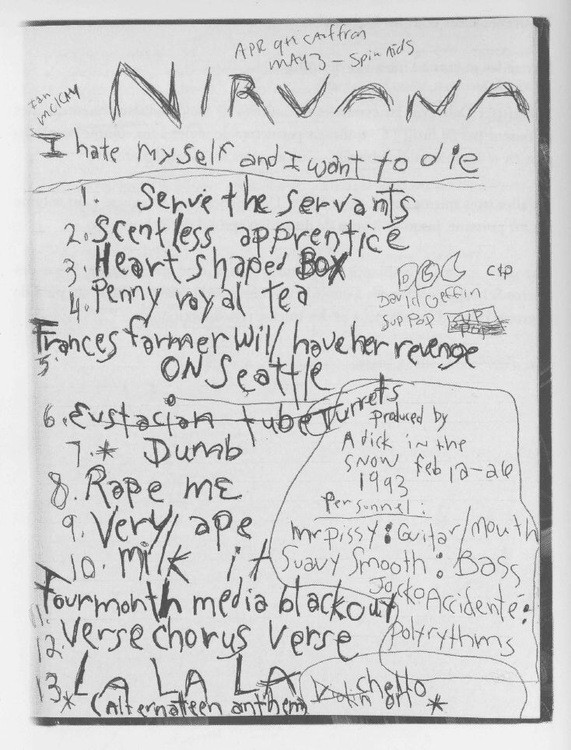 APR 9th
MAY 3 - Spin Aids
NIRVANA
Ian
McKay
I hate myself and I want to die
1. Serve the servants
2. Scentless apprentice
3. Heart shaped BOX
4. Penny royal tea
DGC
David Geffin
SUP POP
SUP
POP
5. Frances farmer will have her revenge
ON Seattle
6. Eustacian tube Turrets
7. * Dumb
8. Rape me
9. Very ape
10. milk it
11. Fourmonth media blackout
12. Verse chorus Verse
13. LA LA LA
* (Alternateen anthem)
Produced by
A dick in the
SNOW Feb 12-26
1993
Personnel:
mr pissy: Guitar/mouth
Suavy Smooth: Bass
Jocko Accidenté:
Polyrythms
ghetto
*